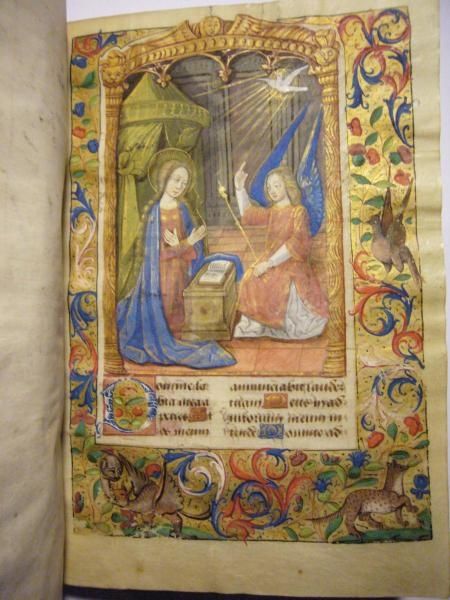 Domine la
bia mea a
peries Et
os meum
annunciabit laudem
tuam Deus in ad
iutorium meum in
tende Domine ad